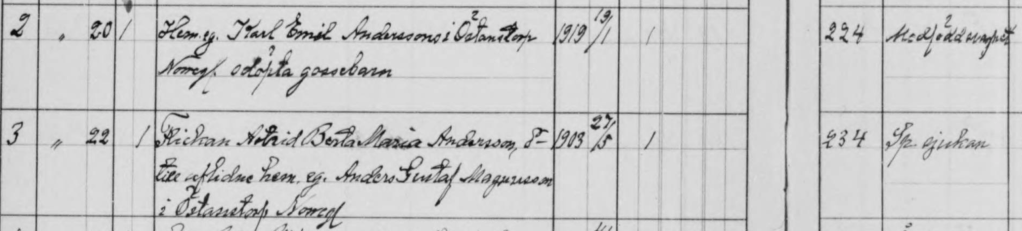 2 " 20 1 Hem.eg. Karl Emil Anderssons i Östanstorp 1919 19/1 1 224 Medfödd svaghet
Norregl. odöpta gossebarn
3 " 22 1 Flickan Astrid Berta Maria Andersson, d- 1903 27/5 1 234 Sp. sjukan
till aflidne hem. eg. Anders Gustaf Magnusson
i Östanstorp Norregl